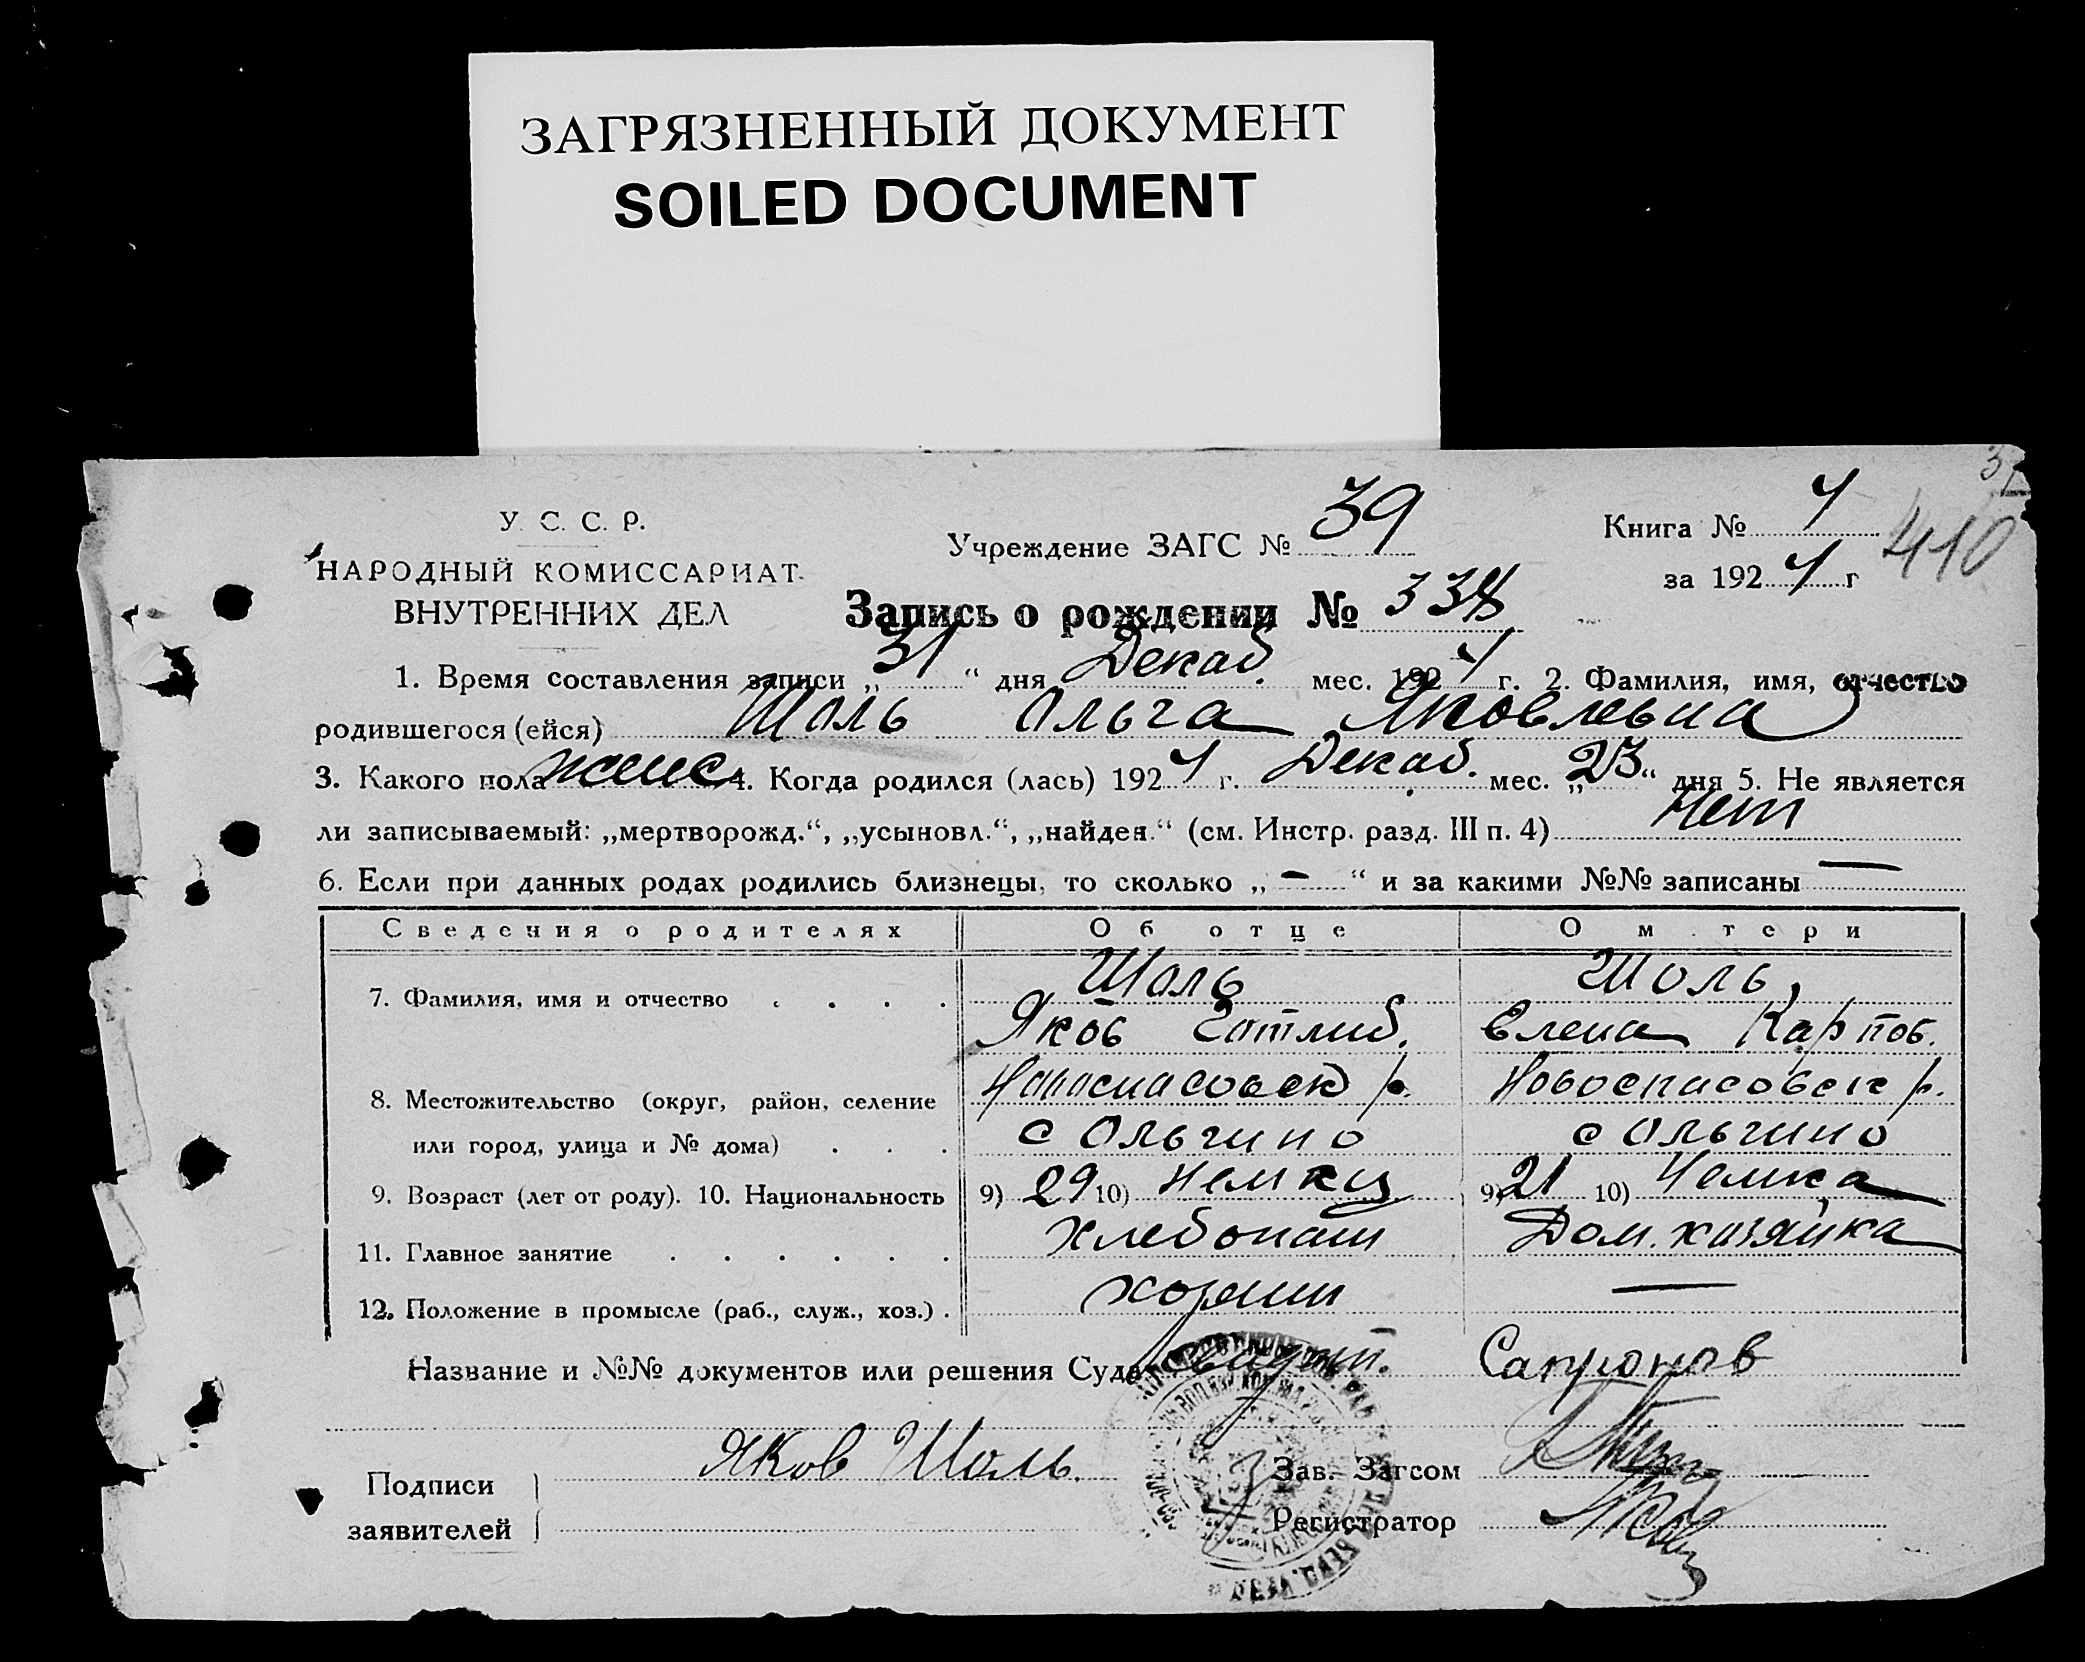 ЗАГРЯЗНЕННЫЙ ДОКУМЕНТ
SOILED DOCUMENT
У. С. С. Р.
НАРОДНЫЙ КОМИССАРИАТ
ВНУТРЕННИХ ДЕЛ
Учреждение ЗАГС № 39
Книга № 4
410
за 1924 г
Запись о рождении №
1. Время составления записи „31“ дня Декаб. мес. 1924 г. 2. Фамилия, имя, отчество
родившегося (ейся) Шоль Ольга Яковлевна
3. Какого пола женс 4. Когда родился (лась) 1924 г. Декаб. мес. „23“ дня 5. Не является
ли записываемый: „мертворожд.“, „усыновл.“, „найден.“ (см. Инстр. разд. III п. 4) Нет
6. Если при данных родах родились близнецы, то сколько „ – “ и за какими №№ записаны —
Сведения о родителях Об отце О м тери
7. Фамилия, имя и отчество . . . . Шоль Шоль,
Яков Готлиб. Елена Карпов.
8. Местожительство (округ, район, селение Новоспасовск р. Новоспасовск р.
или город, улица и № дома) . . . с Ольгино с Ольгино
9. Возраст (лет от роду). 10. Национальность 9) 29 10) Немец 9) 21 10) Немка
11. Главное занятие . . . . . . хлебопаш Дом. хозяйка
12. Положение в промысле (раб., служ., хоз.) . хозяин —
Название и №№ документов или решения Суда Сапронов
Подписи
заявителей
Яков Шоль.
Зав. Загсом
Регистратор